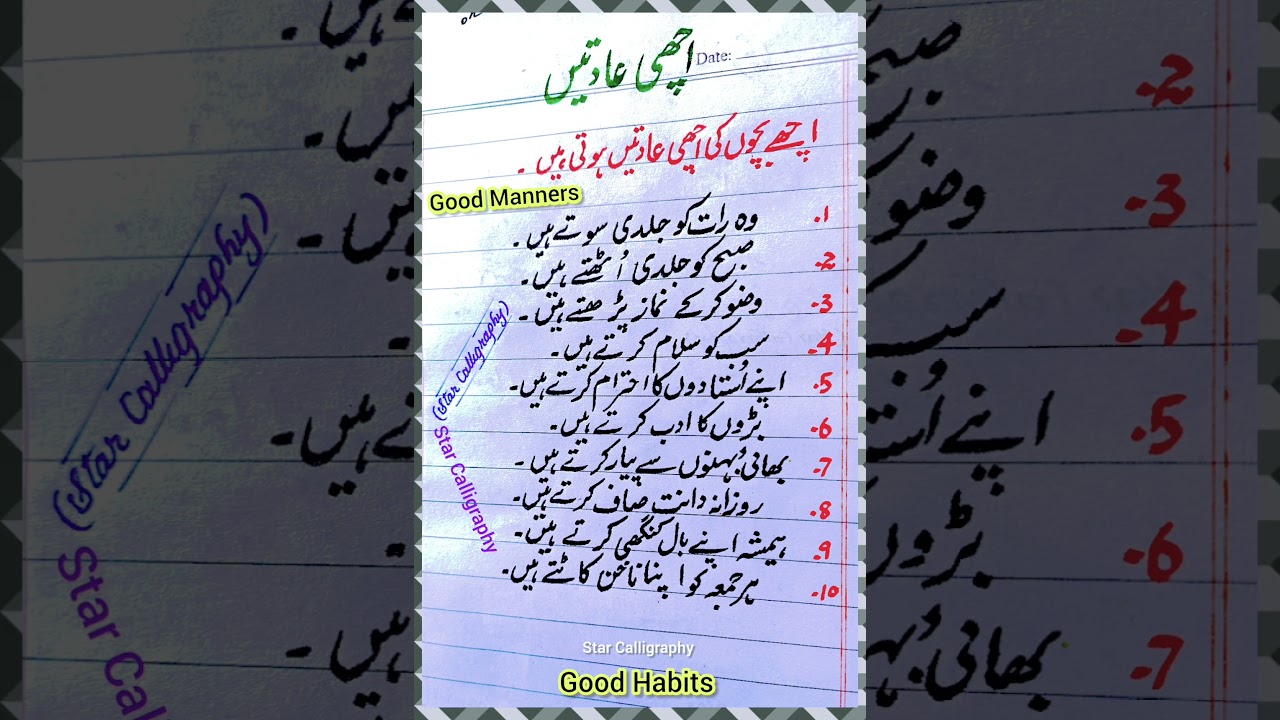 اچھی عادتیں
Date:
اچھے بچوں کی اچھی عادتیں ہوتی ہیں۔
Good Manners
1. وہ رات کو جلدی سوتے ہیں۔
2. صبح کو جلدی اُٹھتے ہیں۔
3. وضو کرکے نماز پڑھتے ہیں۔
4. سب کو سلام کرتے ہیں۔
5. اپنے اُستادوں کا احترام کرتے ہیں۔
6. بڑوں کا ادب کرتے ہیں۔
7. بھائی بُہنوں سے پیار کرتے ہیں۔
8. روزانہ دانت صاف کرتے ہیں۔
9. ہمیشہ اپنے بال کنگھی کرتے ہیں۔
10. ہر جمعہ کو اپنا ناخن کاٹتے ہیں۔
(Star Calligraphy)
Star Calligraphy
Star Calligraphy
Good Habits